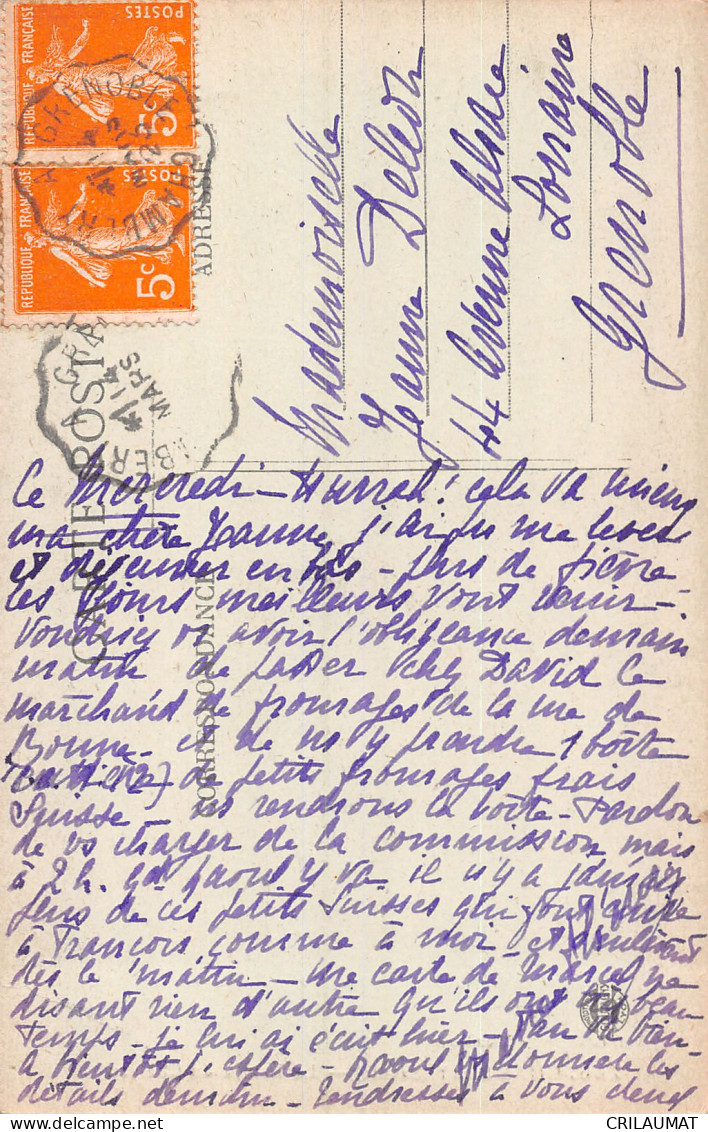 RÉPUBLIQUE FRANÇAISE
POSTES
5c
RÉPUBLIQUE FRANÇAISE
POSTES
5c
GRENOBLE
MARS
CARTE POSTALE
CORRESPONDANCE
ADRESSE
Mademoiselle
Jeanne
44 Avenue Alsace
Lorraine
Grenoble
Ce Mercredi - Hurrah ! cela va mieux
ma chère Jeanne, j'ai pu me lever
et déjeuner en bas - plus de fièvre -
les jours meilleurs vont venir -
voudriez vs avoir l'obligeance demain
matin de passer chez David le
marchand de fromages de la rue de
Bonne - et de ns y prendre 1 boîte
de petits fromages frais
Suisse - vs rendrons la boîte - Pardon
de vs charger de la commission mais
à 2 h. qd Raoul y va il n'y a jamais
plus de ces petits Suisses qui font envie
à François comme à moi et seulement
dès le matin - une carte de Marcel ne
disant rien d'autre qu'ils ont beau
temps - je lui ai écrit hier -
à bientôt j'espère - Raoul donnera les
détails demain - Tendresses à vous deux
CRILAUMAT